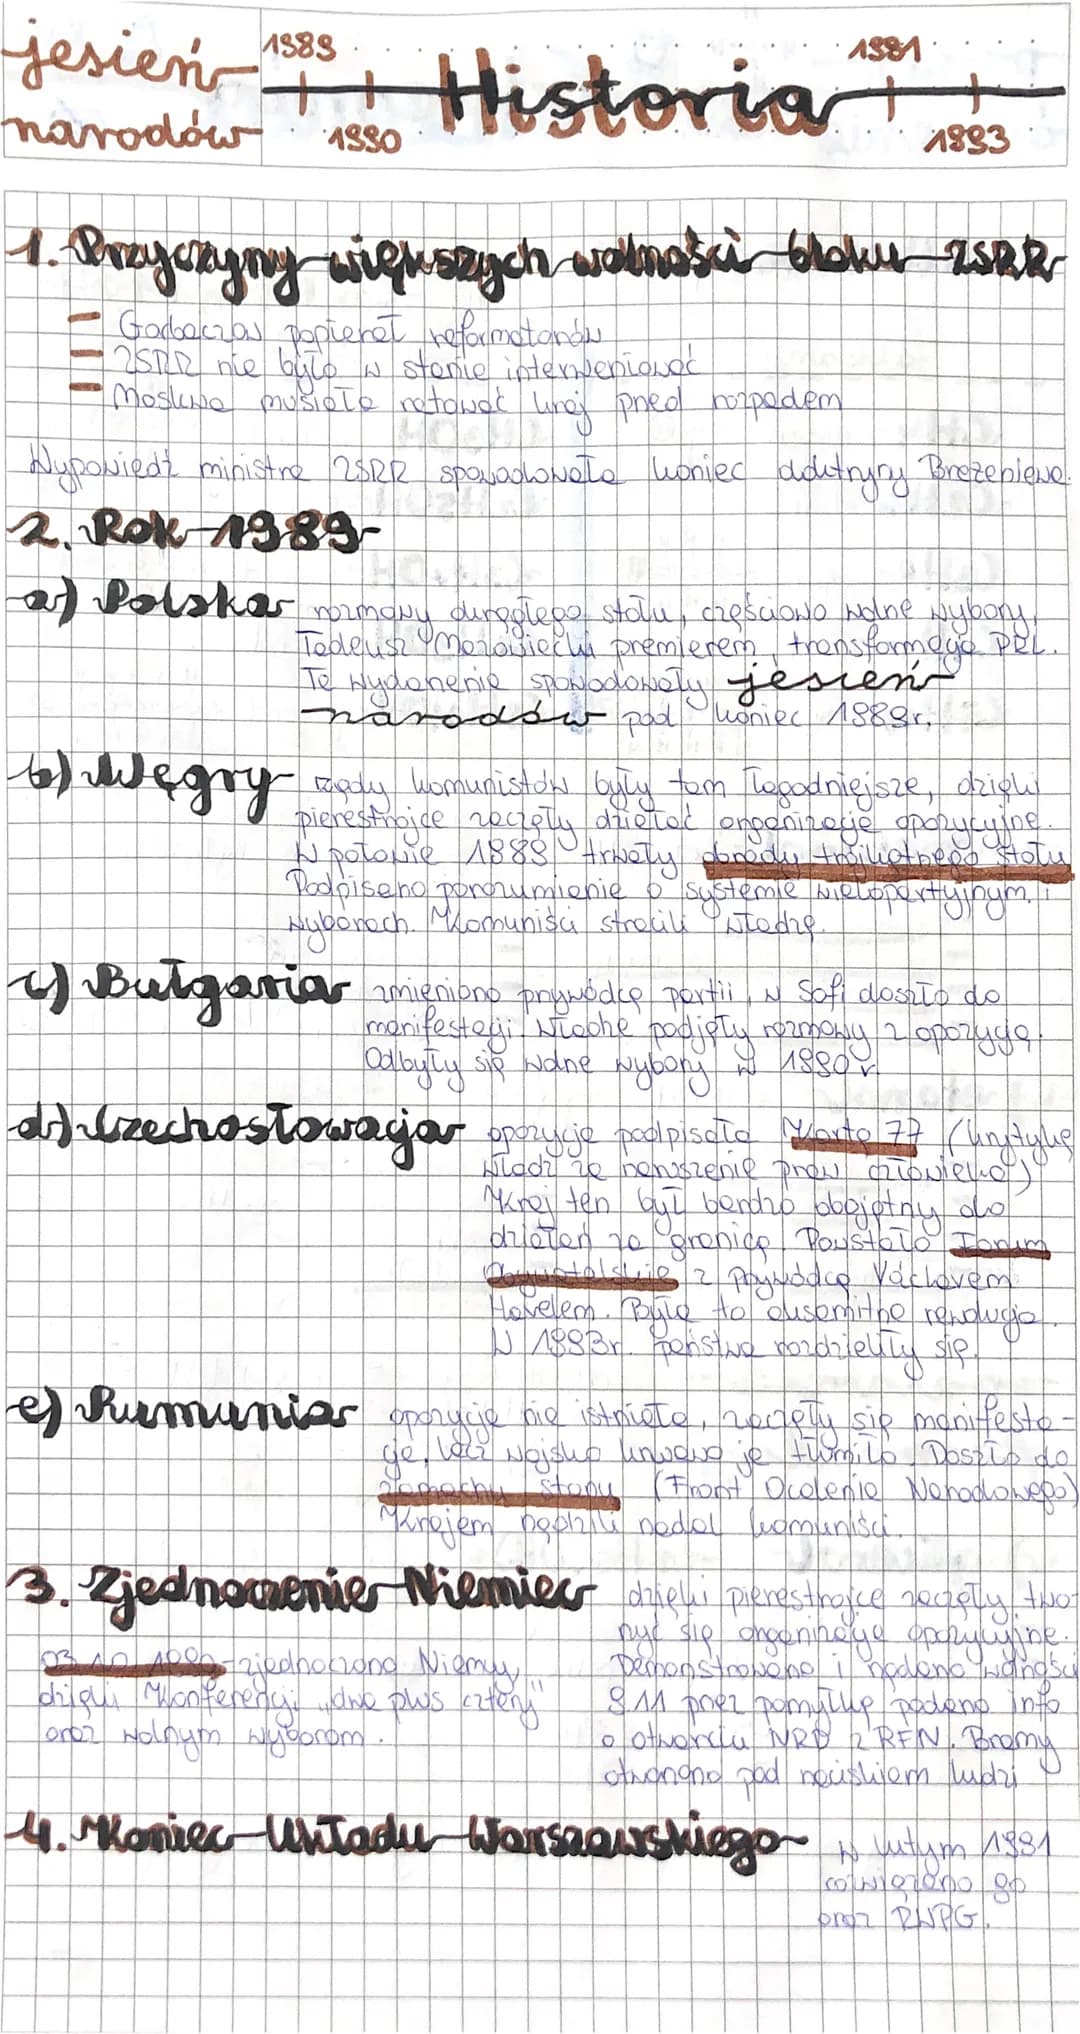 jesień
narodów
1989
1990
Historia
1991
1993
1. Przyczyny większych wolności bloku ZSRR
- Gorbaczow popierał reformatorów
- ZSRR nie było w stanie interweniować
- Moskwa musiała ratować kraj przed rozpadem
Wypowiedź ministra ZSRR spowodowała koniec doktryny Breżeniewa.
2. Rok 1989
a) Polska rozmowy okrągłego stołu, częściowo wolne wybory,
Tadeusz Mazowiecki premierem, transformacja PRL.
Te wydarzenia spowodowały jesień
narodów pod koniec 1989r.
b) Węgry rządy komunistów były tam łagodniejsze, dzięki
pierestrojce zaczęły działać organizacje opozycyjne.
W połowie 1989 trwały obrady trójkątnego stołu
Podpisano porozumienie o systemie wielopartyjnym i
wyborach. Komuniści stracili władzę.
c) Bułgaria zmieniono przywódcę partii, w Sofi doszło do
manifestacji. Władze podjęły rozmowy z opozycją.
Odbyły się wolne wybory w 1990r.
d) Czechosłowacja opozycja podpisała Kartę 77 (krytykę
władz za naruszenie praw człowieka)
Kraj ten był bardzo obojętny do
działań za granicą. Powstało Forum
Obywatelskie z przywódcą Václavem
Havelem. Była to aksamitna rewolucja.
W 1993r. państwa rozdzieliły się.
e) Rumunia opozycja nie istniała, zaczęły się manifesta-
cje, lecz wojsko krwawo je tłumiło. Doszło do
zamachu stanu (Front Ocalenia Narodowego)
Krajem rządzili nadal komuniści.
3. Zjednoczenie Niemiec dzięki pierestrojce zaczęły two-
rzyć się organizacje opozycyjne.
Demonstrowano i żądano wolności
9.11 przez pomyłkę podano info
o otwarciu NRD z RFN. Bramy
otworzono pod naciskiem ludzi
03.10.1990 - zjednoczono Niemcy,
dzięki Konferencji "dwa plus cztery"
oraz wolnym wyborom.
4. Koniec Układu Warszawskiego w lutym 1991
rozwiązano go
oraz RWPG.